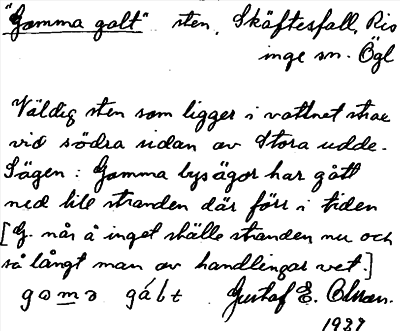 "Gamma galt" sten, Skäftesfall, Ris
inge sn. Ögl
Väldig sten som ligger i vattnet strax
vid södra sidan av Stora udde.
Sägen: Gamma bys ägor har gått
ned till stranden där förr i tiden
[G. når å inget ställe stranden nu och
så långt man av handlingar vet.]
Gustaf E. Olsson.
1937